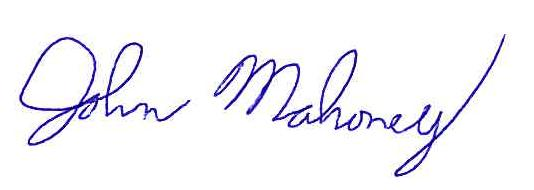 John Mahoney